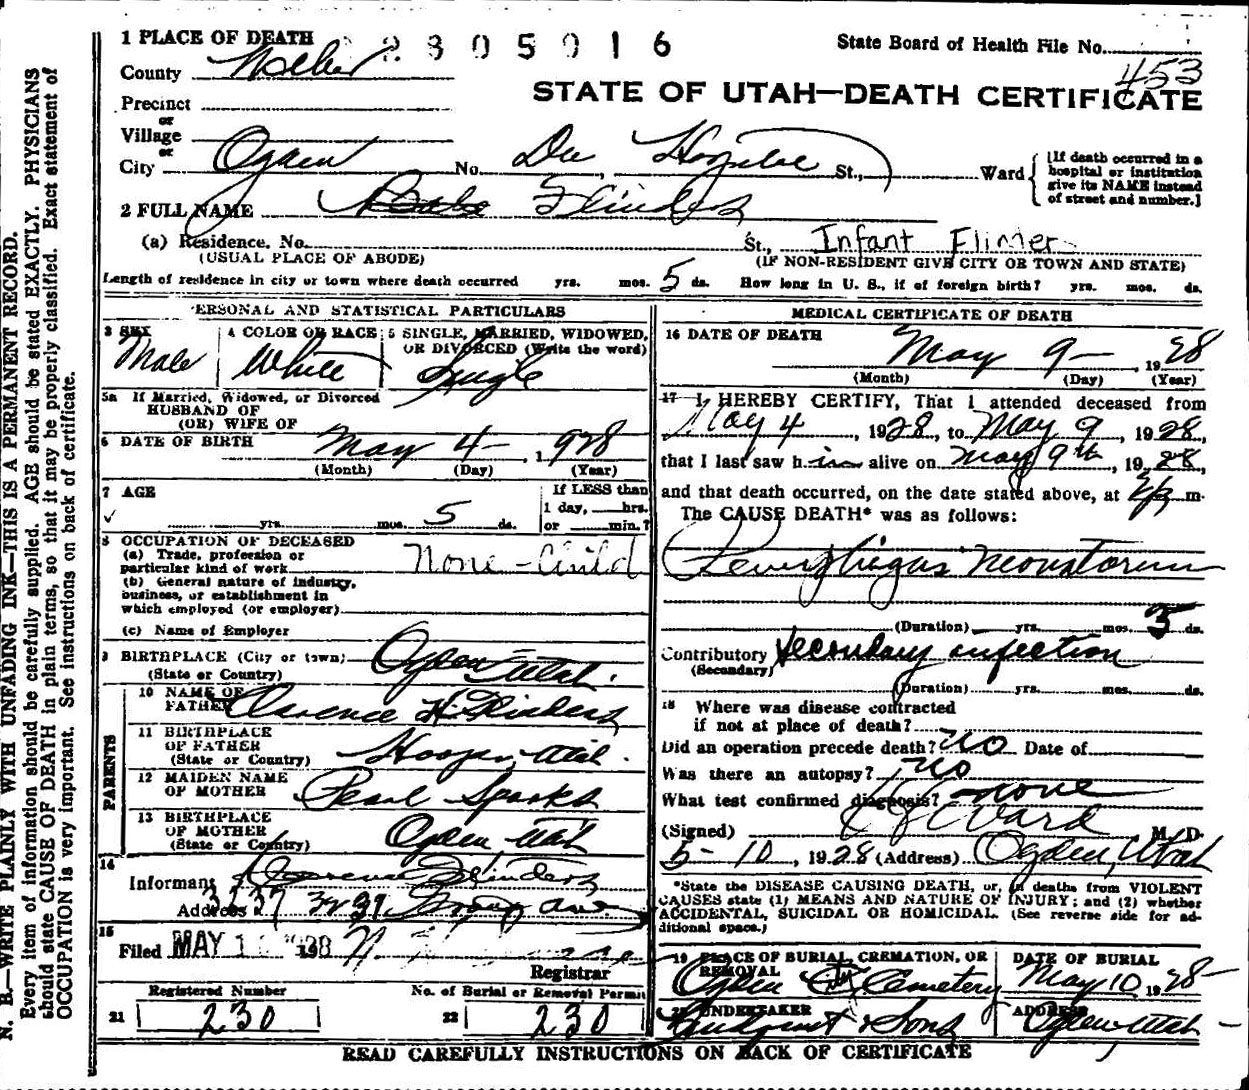 N. B.—WRITE PLAINLY WITH UNFADING INK—THIS IS A PERMANENT RECORD.
Every item of information should be carefully supplied. AGE should be stated EXACTLY. PHYSICIANS
should state CAUSE OF DEATH in plain terms, so that it may be properly classified. Exact statement of
OCCUPATION is very important. See instructions on back of certificate.
1 PLACE OF DEATH
2305016
State Board of Health File No.
453
County Weber
STATE OF UTAH—DEATH CERTIFICATE
Precinct
or
Village
or
City Ogden No. Dee Hospital St., Ward
[If death occurred in a
hospital or institution
give its NAME instead
of street and number.]
2 FULL NAME Flinders
(a) Residence. No. St., Infant Flinder
(USUAL PLACE OF ABODE) (IF NON-RESIDENT GIVE CITY OR TOWN AND STATE)
Length of residence in city or town where death occurred yrs. mos. 5 ds. How long in U. S., if of foreign birth? yrs. mos. ds.
PERSONAL AND STATISTICAL PARTICULARS
3 SEX
Male
4 COLOR OR RACE
White
5 SINGLE, MARRIED, WIDOWED,
OR DIVORCED (Write the word)
Single
5a If Married, Widowed, or Divorced
HUSBAND OF
(OR) WIFE OF
6 DATE OF BIRTH May 4- 1928
(Month) (Day) (Year)
7 AGE
yrs. mos. 5 ds.
If LESS than
1 day, hrs.
or min.?
8 OCCUPATION OF DECEASED
(a) Trade, profession or
particular kind of work None-Child
(b) General nature of industry,
business, or establishment in
which employed (or employer)
(c) Name of Employer
9 BIRTHPLACE (City or town) Ogden Utah.
(State or Country)
PARENTS
10 NAME OF
FATHER Clarence H. Flinders
11 BIRTHPLACE
OF FATHER Hooper, Utah.
(State or Country)
12 MAIDEN NAME
OF MOTHER Pearl Sparks
13 BIRTHPLACE
OF MOTHER Ogden, Utah
(State or Country)
14
Informant Clarence Flinders
Address
15
Filed MAY 1 1928
Registrar
Registered Number
No. of Burial or Removal Permit
21 230
22 230
MEDICAL CERTIFICATE OF DEATH
16 DATE OF DEATH May 9- 1928
(Month) (Day) (Year)
17 I HEREBY CERTIFY, That I attended deceased from
May 4, 1928, to May 9, 1928,
that I last saw him alive on May 9th, 1928,
and that death occurred, on the date stated above, at m.
The CAUSE DEATH* was as follows:
Pemphigus Neonatorum
(Duration) yrs. mos. 5 ds.
Contributory Secondary infection
(Secondary)
(Duration) yrs. mos. ds.
18 Where was disease contracted
if not at place of death?
Did an operation precede death? no Date of
Was there an autopsy? no
What test confirmed diagnosis? none
(Signed) Ward M. D.
5-10, 1928 (Address) Ogden, Utah
*State the DISEASE CAUSING DEATH, or, in deaths from VIOLENT
CAUSES state (1) MEANS AND NATURE OF INJURY; and (2) whether
ACCIDENTAL, SUICIDAL OR HOMICIDAL. (See reverse side for ad-
ditional space.)
19 PLACE OF BURIAL, CREMATION, OR
REMOVAL
Ogden City Cemetery
DATE OF BURIAL
May 10 1928
20 UNDERTAKER
Lindquist & Sons
ADDRESS
Ogden, Utah
READ CAREFULLY INSTRUCTIONS ON BACK OF CERTIFICATE